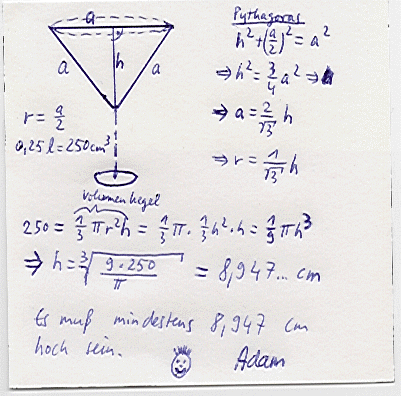 a
a
h
a
r = a/2
0,25 l = 250 cm³
Pythagoras
h² + (a/2)² = a²
⇒ h² = 3/4 a² ⇒
⇒ a = 2/√3 h
⇒ r = 1/√3 h
Volumen Kegel
250 = 1/3 π r² h = 1/3 π · 1/3 h² · h = 1/9 π h³
⇒ h = ³√(9·250/π) = 8,947... cm
Es muß mindestens 8,947 cm
hoch sein.
Adam